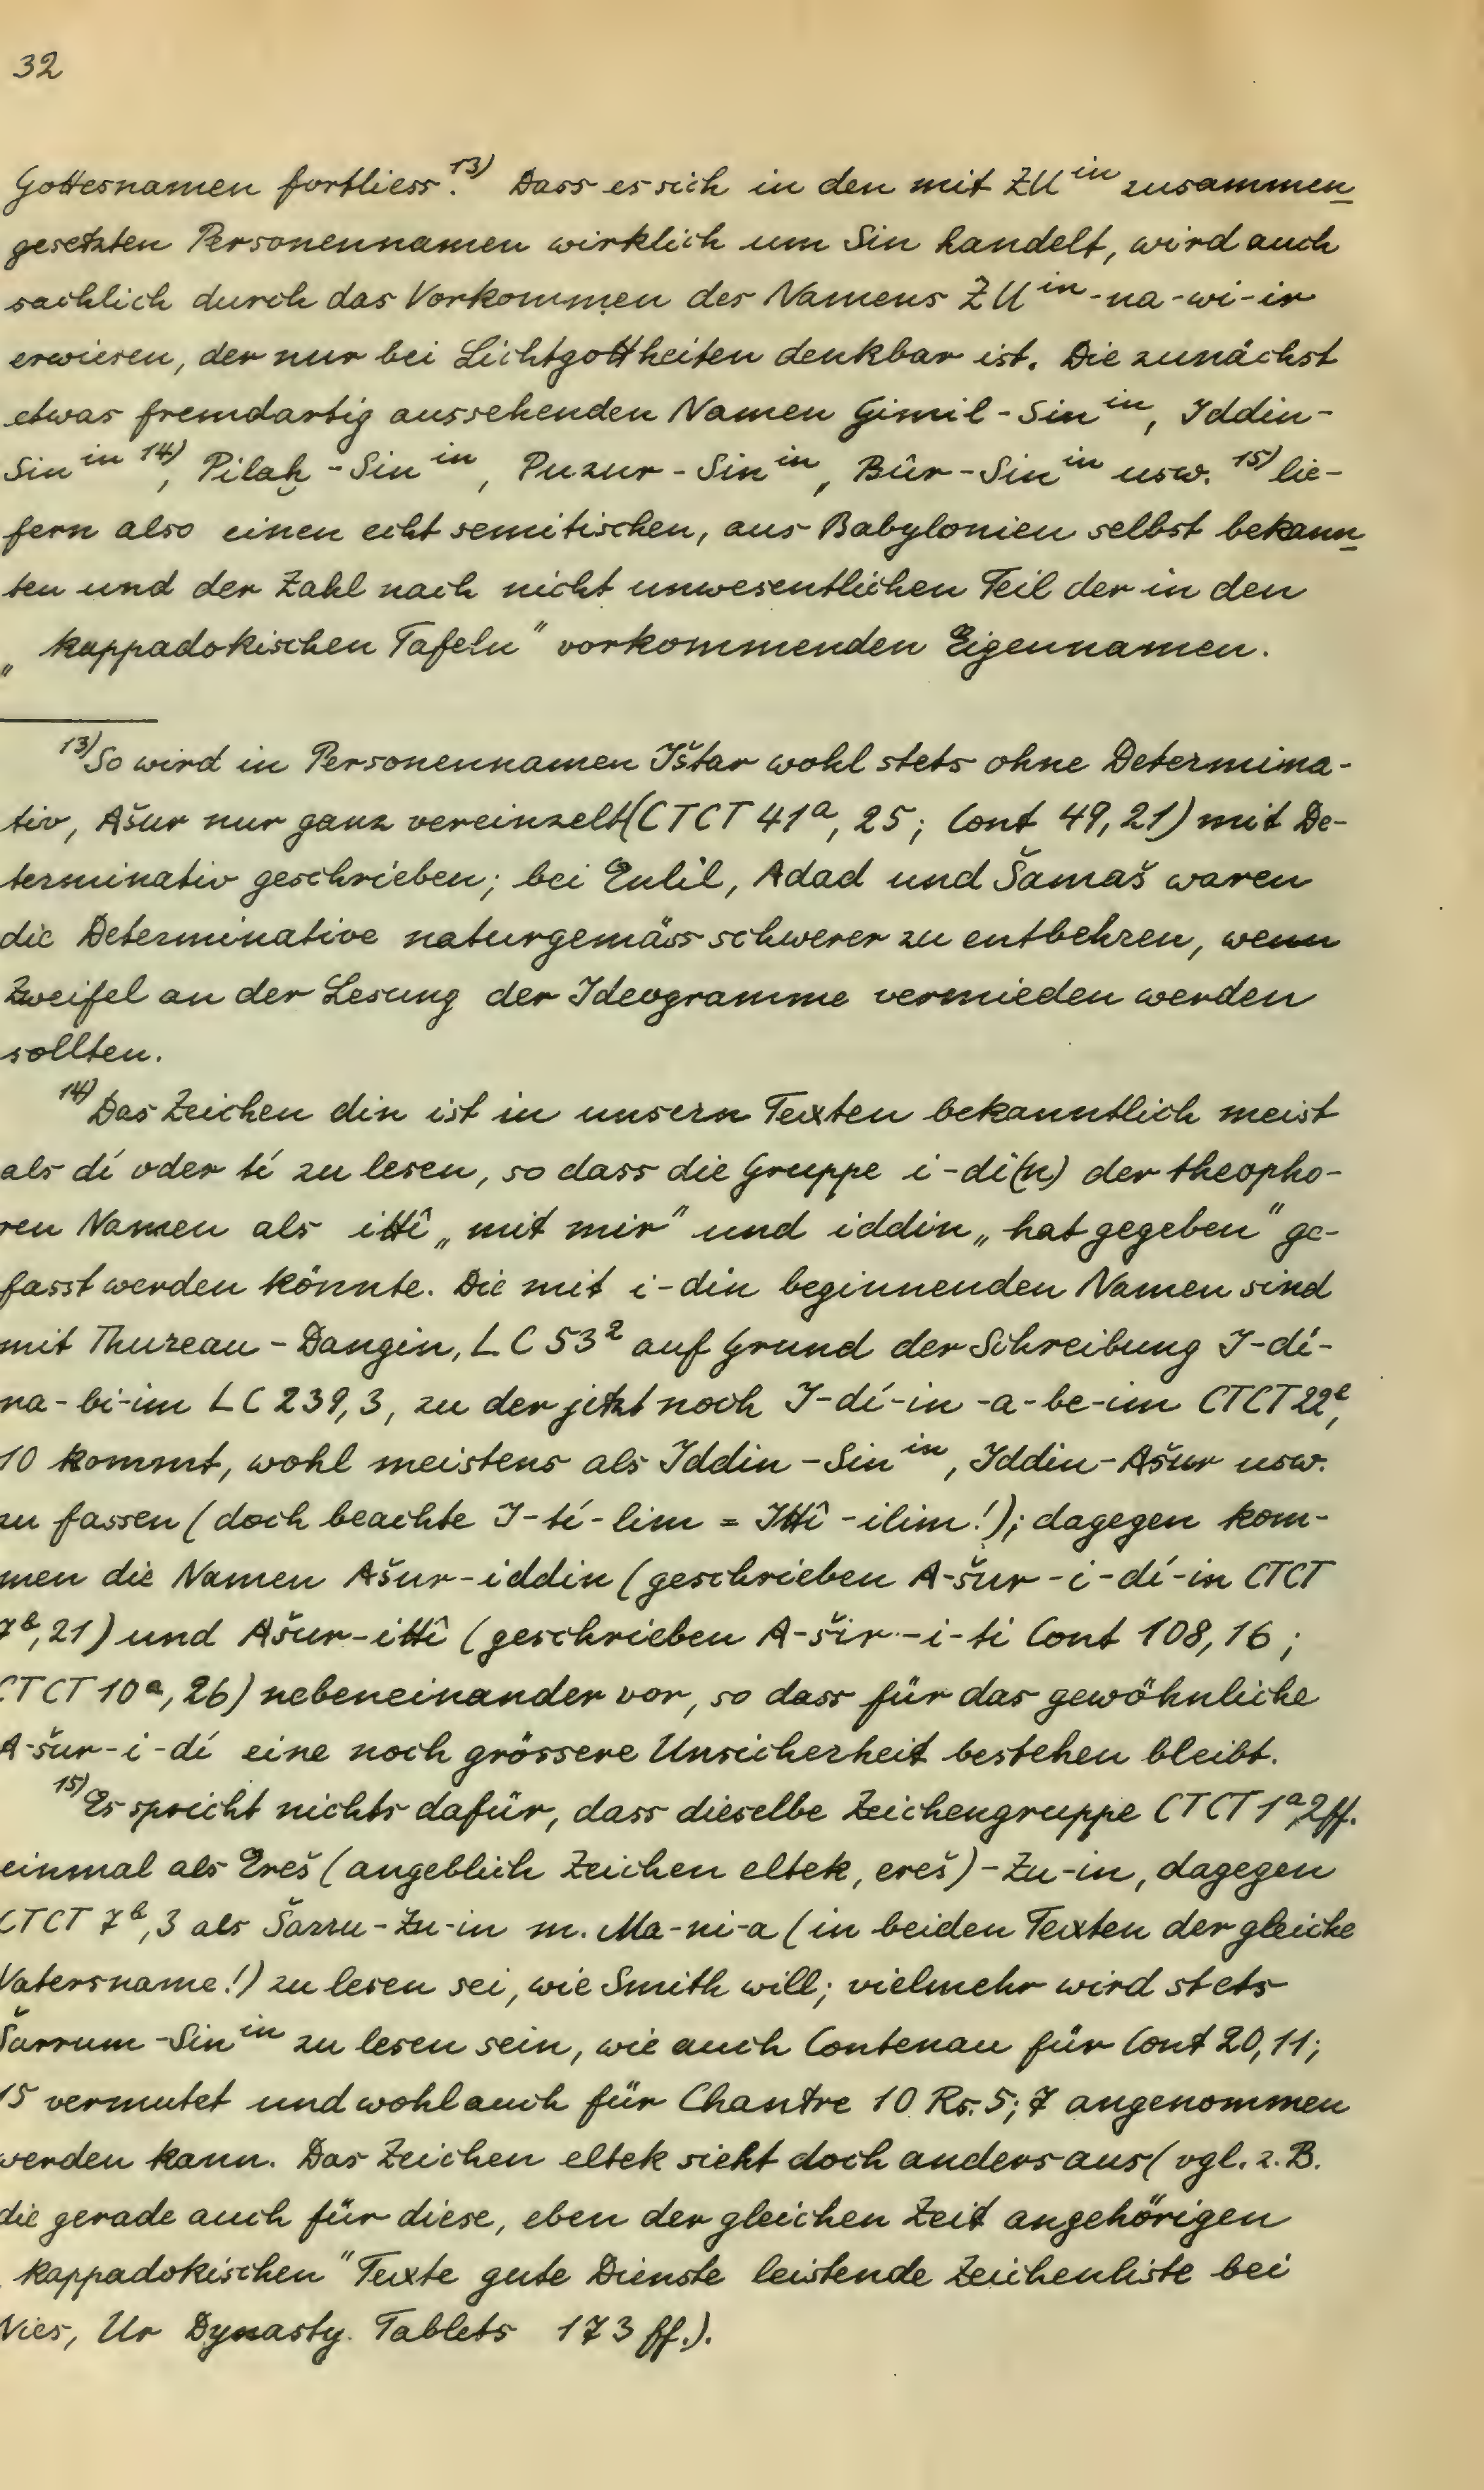 32
Gottesnamen fortliess.¹³⁾ Dass es sich in den mit ZUⁱⁿ zusammen
gesetzten Personennamen wirklich um Sin handelt, wird auch
sachlich durch das Vorkommen des Namens ZUⁱⁿ-na-wi-ir
erwiesen, der nur bei Lichtgottheiten denkbar ist. Die zunächst
etwas fremdartig aussehenden Namen Gimil-Sinⁱⁿ, Iddin-
Sinⁱⁿ ¹⁴⁾, Pilaḫ-Sinⁱⁿ, Puzur-Sinⁱⁿ, Bûr-Sinⁱⁿ usw. ¹⁵⁾ lie-
fern also einen echt semitischen, aus Babylonien selbst bekann
ten und der Zahl nach nicht unwesentlichen Teil der in den
„kappadokischen Tafeln" vorkommenden Eigennamen.
¹³⁾So wird in Personennamen Ištar wohl stets ohne Determina-
tiv, Ašur nur ganz vereinzelt (CTCT 41ᵃ, 25; Cont 49,21) mit De-
terminativ geschrieben; bei Enlil, Adad und Šamaš waren
die Determinative naturgemäss schwerer zu entbehren, wenn
Zweifel an der Lesung der Ideogramme vermieden werden
sollten.
¹⁴⁾Das Zeichen din ist in unsern Texten bekanntlich meist
als dí oder tí zu lesen, so dass die Gruppe i-di(n) der theopho-
ren Namen als ittî „mit mir" und iddin „hat gegeben" ge-
fasst werden könnte. Die mit i-din beginnenden Namen sind
mit Thureau-Dangin, LC 53² auf Grund der Schreibung I-dí-
na-bi-im LC 239,3, zu der jetzt noch I-dí-in-a-be-im CTCT 22ᵇ,
10 kommt, wohl meistens als Iddin-Sinⁱⁿ, Iddin-Ašur usw.
zu fassen (doch beachte I-tí-lim = Ittî-ilim!); dagegen kom-
men die Namen Ašur-iddin (geschrieben A-šur-i-dí-in CTCT
7ᵇ, 21) und Ašur-ittî (geschrieben A-šir-i-ti Cont 108, 16;
CTCT 10ᵃ, 26) nebeneinander vor, so dass für das gewöhnliche
A-šur-i-dí eine noch grössere Unsicherheit bestehen bleibt.
¹⁵⁾Es spricht nichts dafür, dass dieselbe Zeichengruppe CTCT 1ᵃ,2ff.
einmal als Ereš (angeblich Zeichen eltek, ereš)-Zu-in, dagegen
CTCT 7ᵇ, 3 als Šarru-Zu-in m. Ma-ni-a (in beiden Texten der gleiche
Vatersname!) zu lesen sei, wie Smith will; vielmehr wird stets
Šarrum-Sinⁱⁿ zu lesen sein, wie auch Contenau für Cont 20, 11;
15 vermutet und wohl auch für Chantre 10 Rs. 5; 7 angenommen
werden kann. Das Zeichen eltek sieht doch anders aus (vgl. z. B.
die gerade auch für diese, eben der gleichen Zeit angehörigen
kappadokischen" Texte gute Dienste leistende Zeichenliste bei
Nies, Ur Dynasty. Tablets 173 ff.).